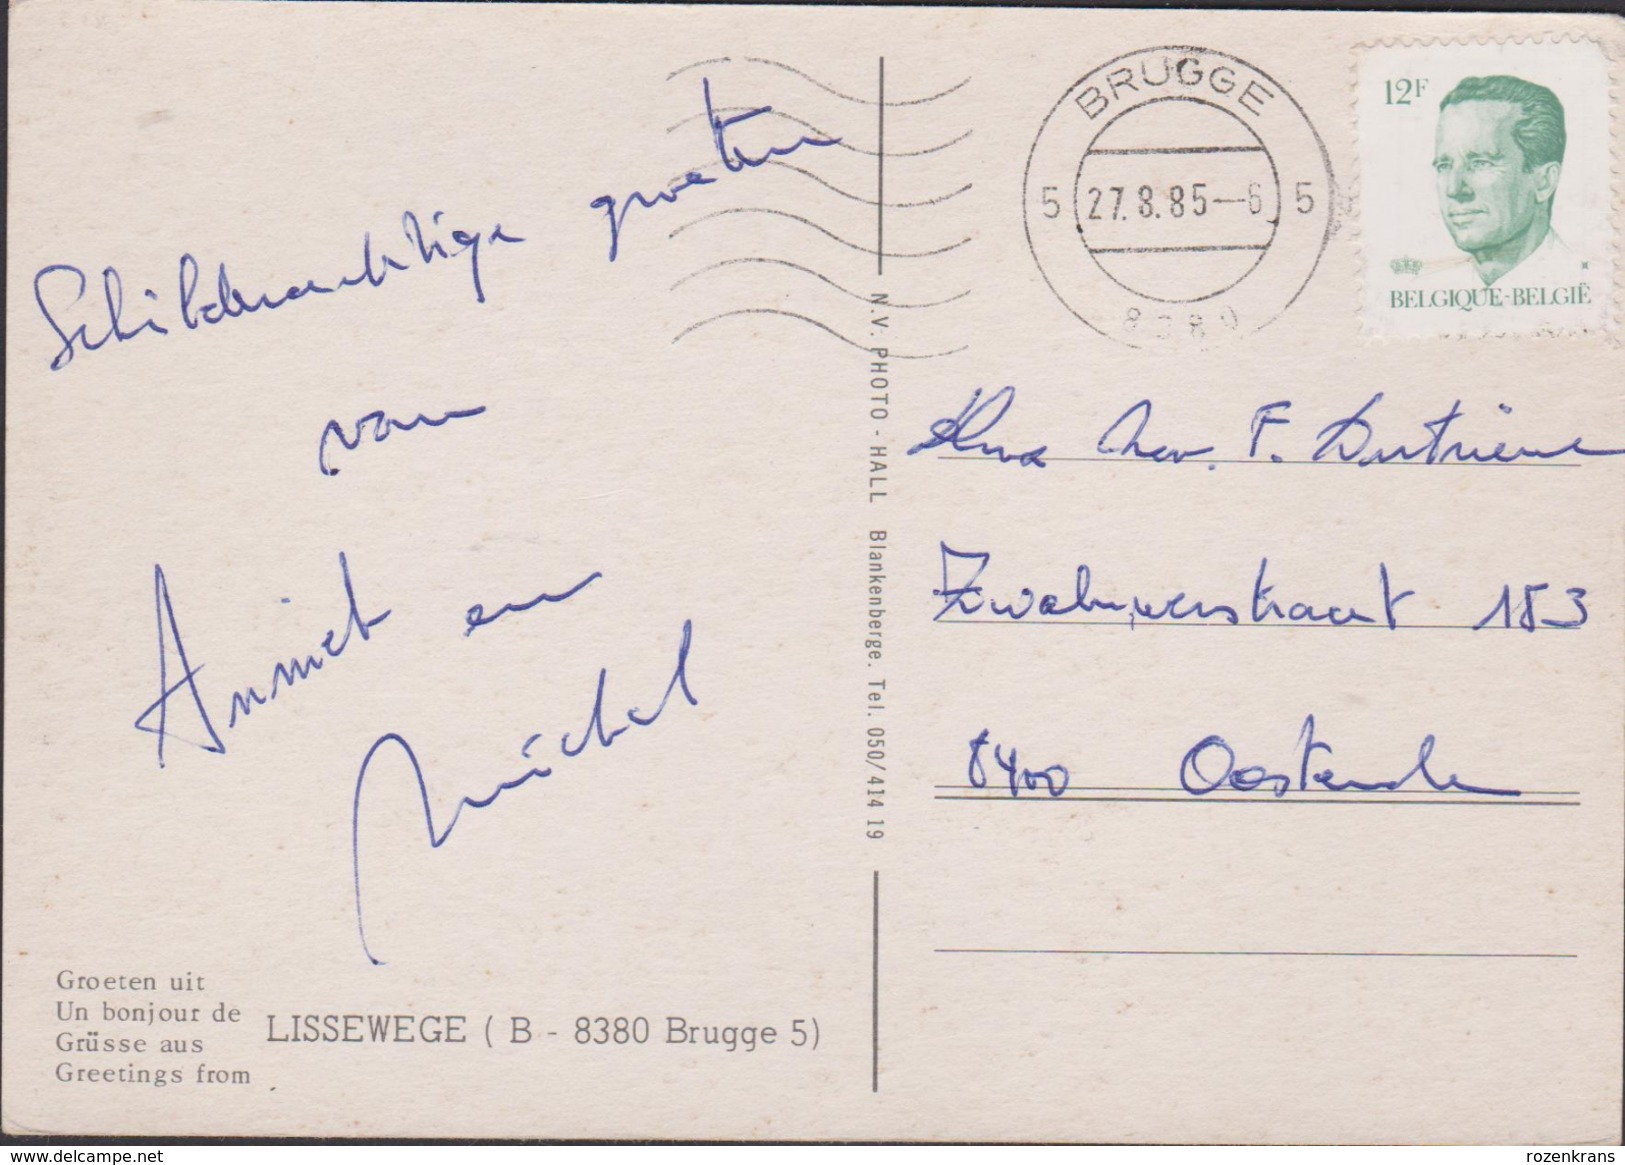 Schilderachtige groeten
van
Anniet en
Michel
Groeten uit
Un bonjour de
Grüsse aus
Greetings from
LISSEWEGE ( B - 8380 Brugge 5)
N.V. PHOTO - HALL Blankenberge. Tel. 050/414 19
BRUGGE
5 27.8.85-6 5
8380
12F
BELGIQUE-BELGIË
F.
153
8400 Oostende
www.delcampe.net
rozenkrans